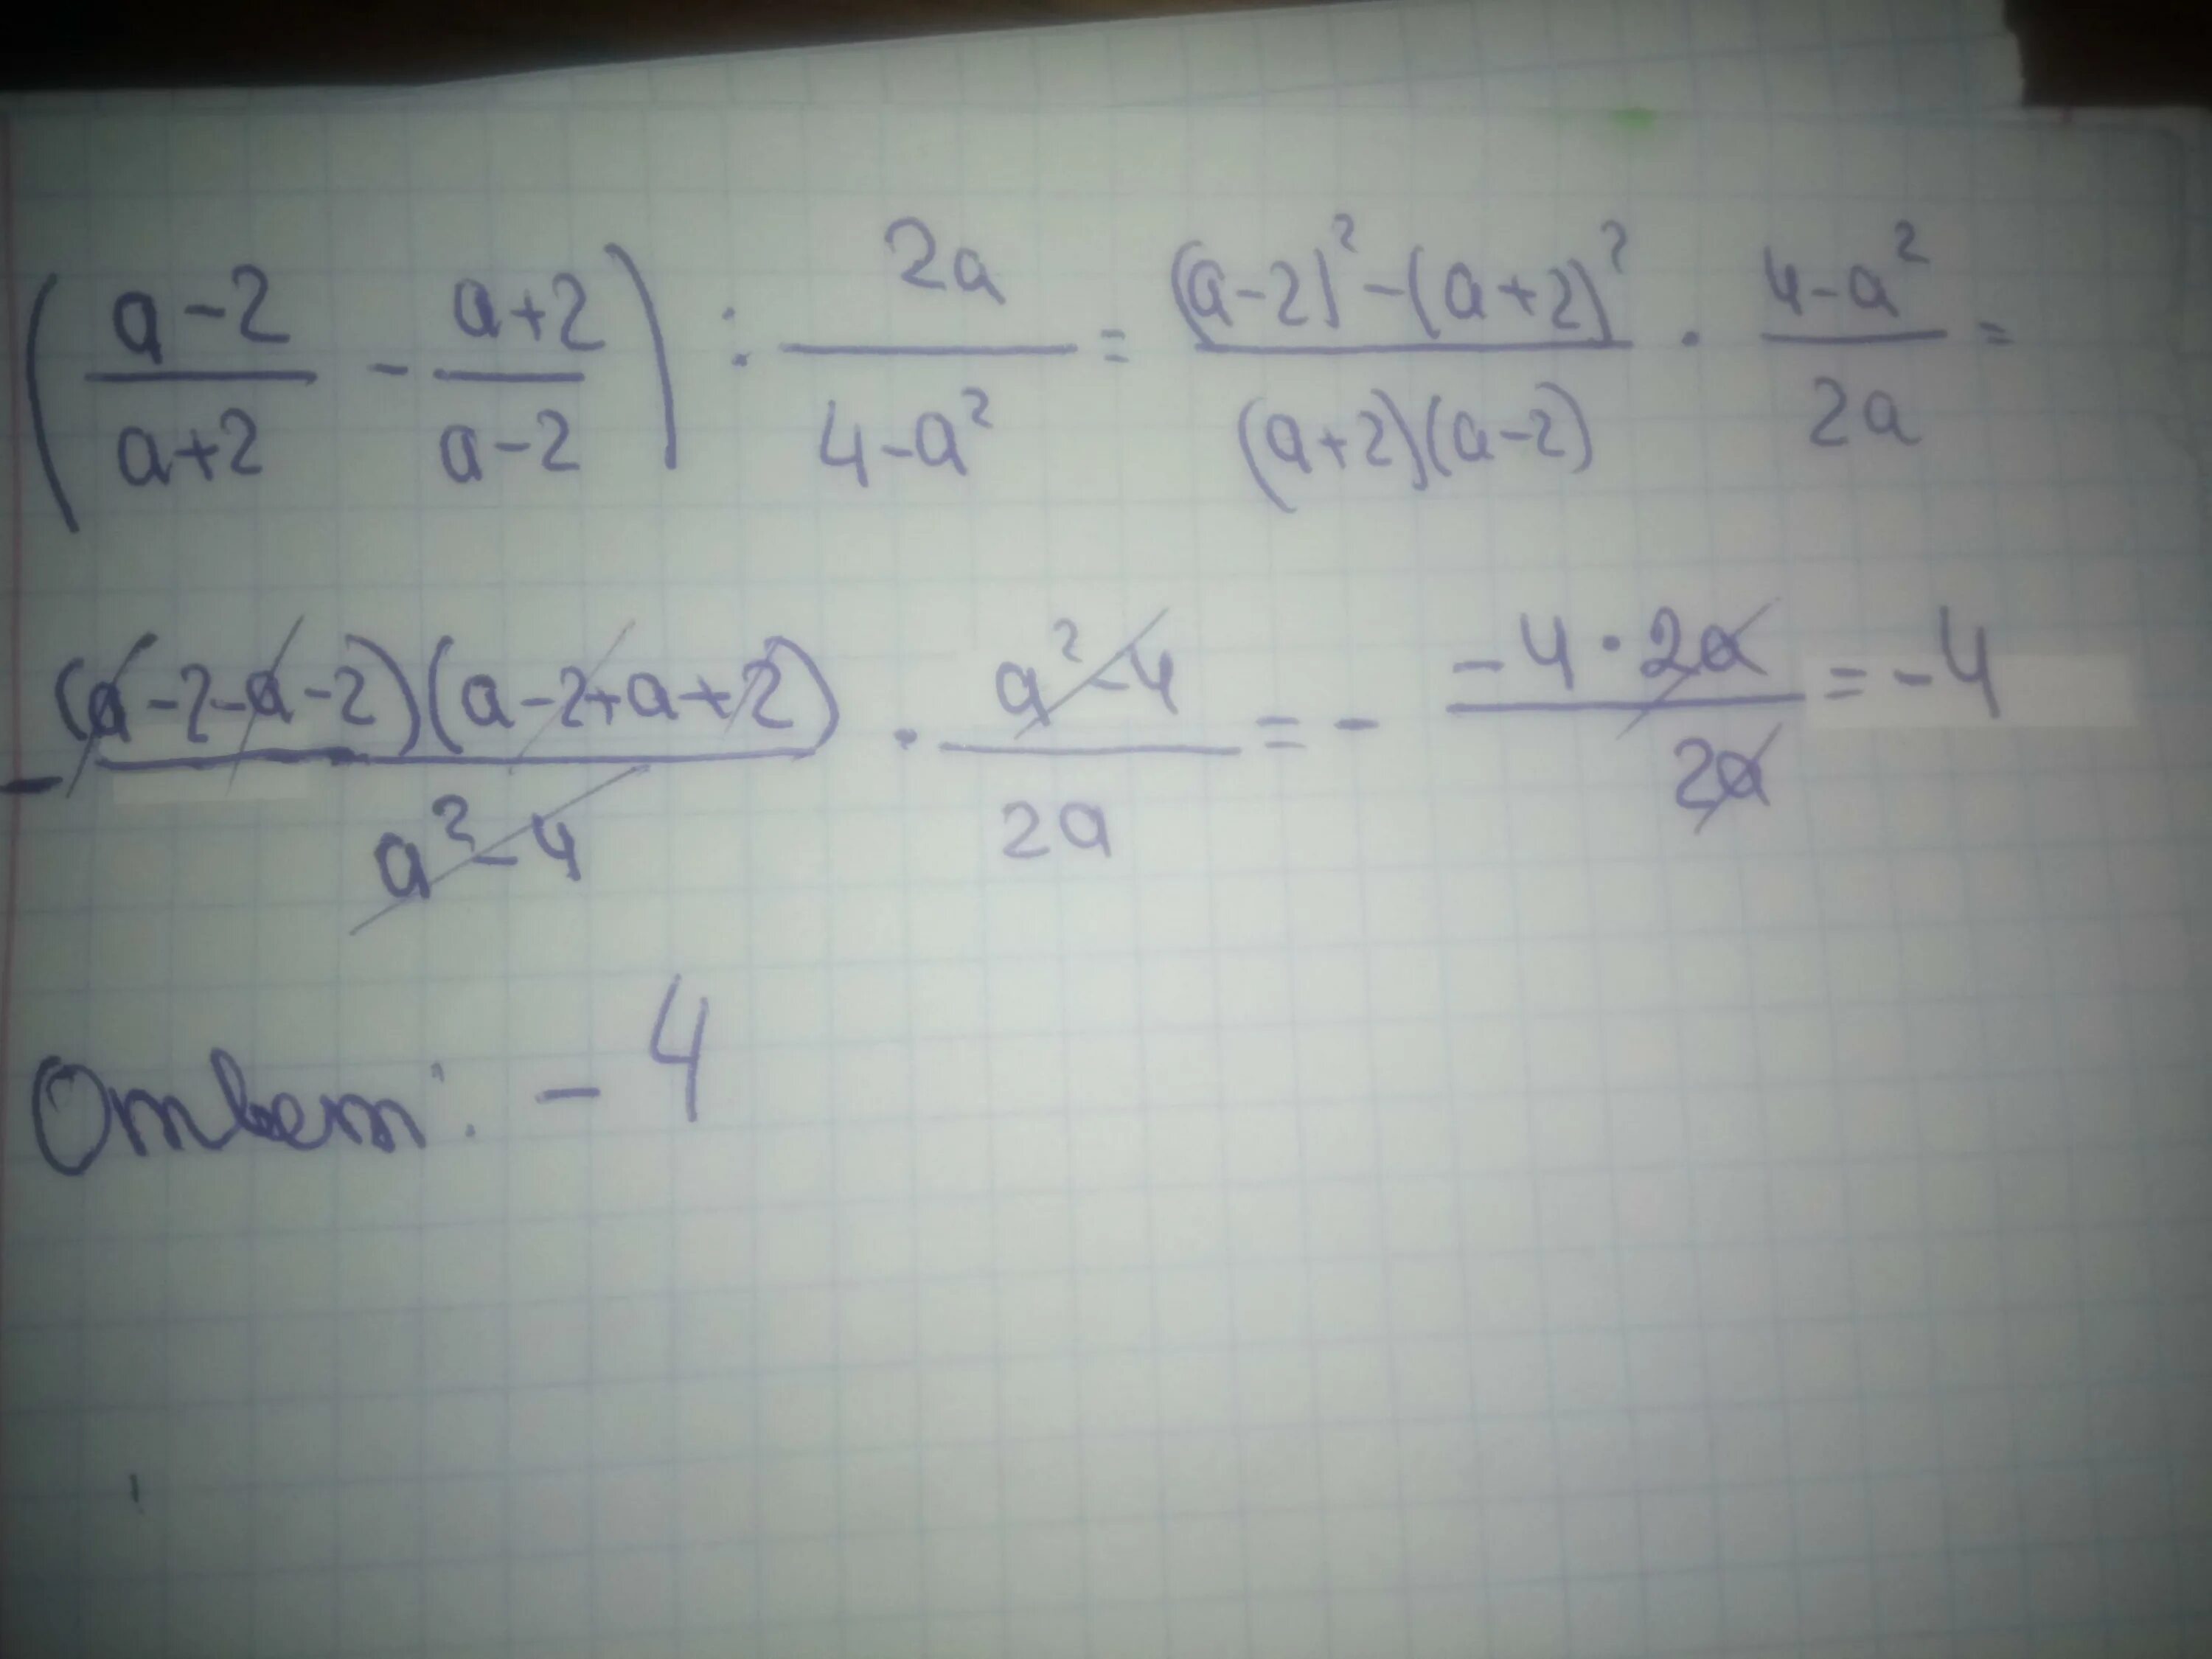 ( (a-2)/(a+2) - (a+2)/(a-2) ) : 2a/(4-a²) = ((a-2)²-(a+2)²)/((a+2)(a-2)) · (4-a²)/2a =
- ((a-2-a-2)(a-2+a+2))/(a²-4) · (a²-4)/2a = - (-4·2a)/2a = -4
Ответ: -4